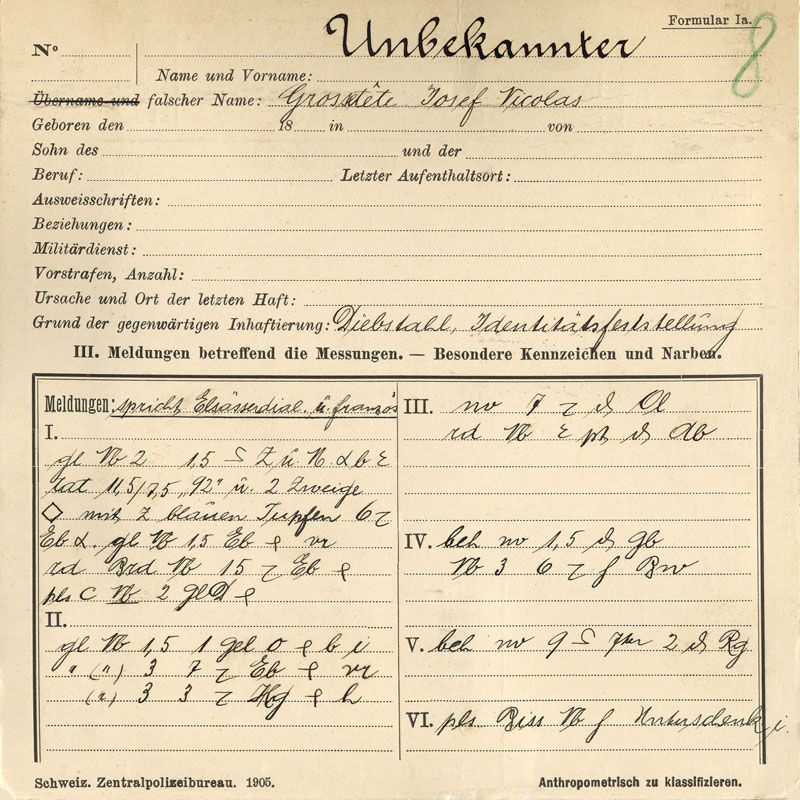 Formular Ia.
8
Unbekannter
Nº
Name und Vorname:
Übername und falscher Name: Grosstête Josef Nicolas
Geboren den 18 in von
Sohn des und der
Beruf: Letzter Aufenthaltsort:
Ausweisschriften:
Beziehungen:
Militärdienst:
Vorstrafen, Anzahl:
Ursache und Ort der letzten Haft:
Grund der gegenwärtigen Inhaftierung: Diebstahl, Identitätsfeststellung
III. Meldungen betreffend die Messungen. — Besondere Kennzeichen und Narben.
Meldungen: spricht Elsässerdial. u. französ
I.
gl Nb 2 1,5 Z u. N. b
tat 11,5/7,5 „92" u. 2 Zweige
mit Z blauen Tupfen 6
Eb gl Nb 1,5 Eb vr
rd Brd Nb 15 Eb
pls C Nb 2 gl
II.
gl Nb 1,5 1 gel o b i
" (") 3 7 Eb vr
(") 3 3 Hg h
III. nv 7 Ol
rd Nb pt Ab
IV. beh nv 1,5 Gb
Nb 3 6 f Bw
V. beh nv 9 2 Rg
VI. pls Biss Nb f Unterschenk i.
Schweiz. Zentralpolizeibureau. 1905.
Anthropometrisch zu klassifizieren.